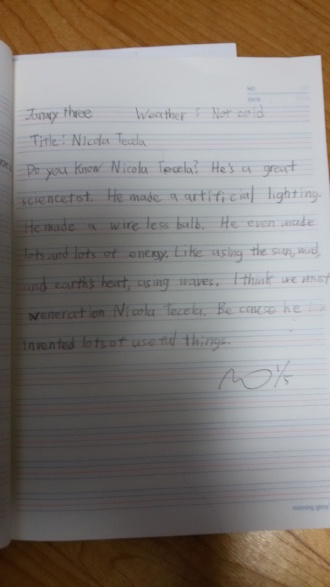 NO.
DATE
Janury three Weather : Not cold
Title: Nicola Tecela
Do you know Nicola Tecela? He's a great
sciencetist. He made a artificial lighting.
He made a wire less bulb. He even made
lots and lots of energy. Like using the sun, wind,
and earth's heat, using waves. I think we must
veneration Nicola Tecela. Be cause he
invented lots of useful things.
1/5
morning glory